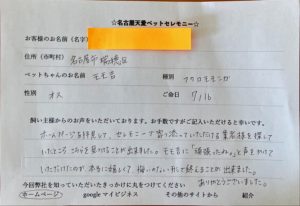 ☆名古屋天愛ペットセレモニー☆
お客様のお名前（名字）
住所（市町村） 名古屋市瑞穂区
ペットちゃんのお名前 モモ吉 種別 フクロモモンガ
性別 オス ご命日 7/16
飼い主様からのお声をいただいております。お手数ですがご記入いただけると幸いです。
ホームページを拝見して、セレモニーで寄り添っていただける業者様を探して
いたところ こちらを見つけることが出来ました。モモ吉に「頑張ったね。」と声をかけて
いただけたのが、本当に嬉しくて 悔いのない形で終えることが出来ました。
ありがとうございました。
今回弊社を知っていただいたきっかけに丸をつけてください
ホームページ googleマイビジネス その他のサイトから 紹介